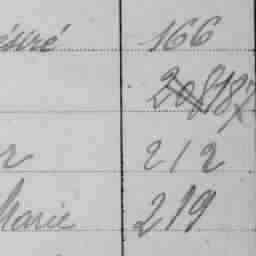 ésiré 166
187
r 212
Marie 219